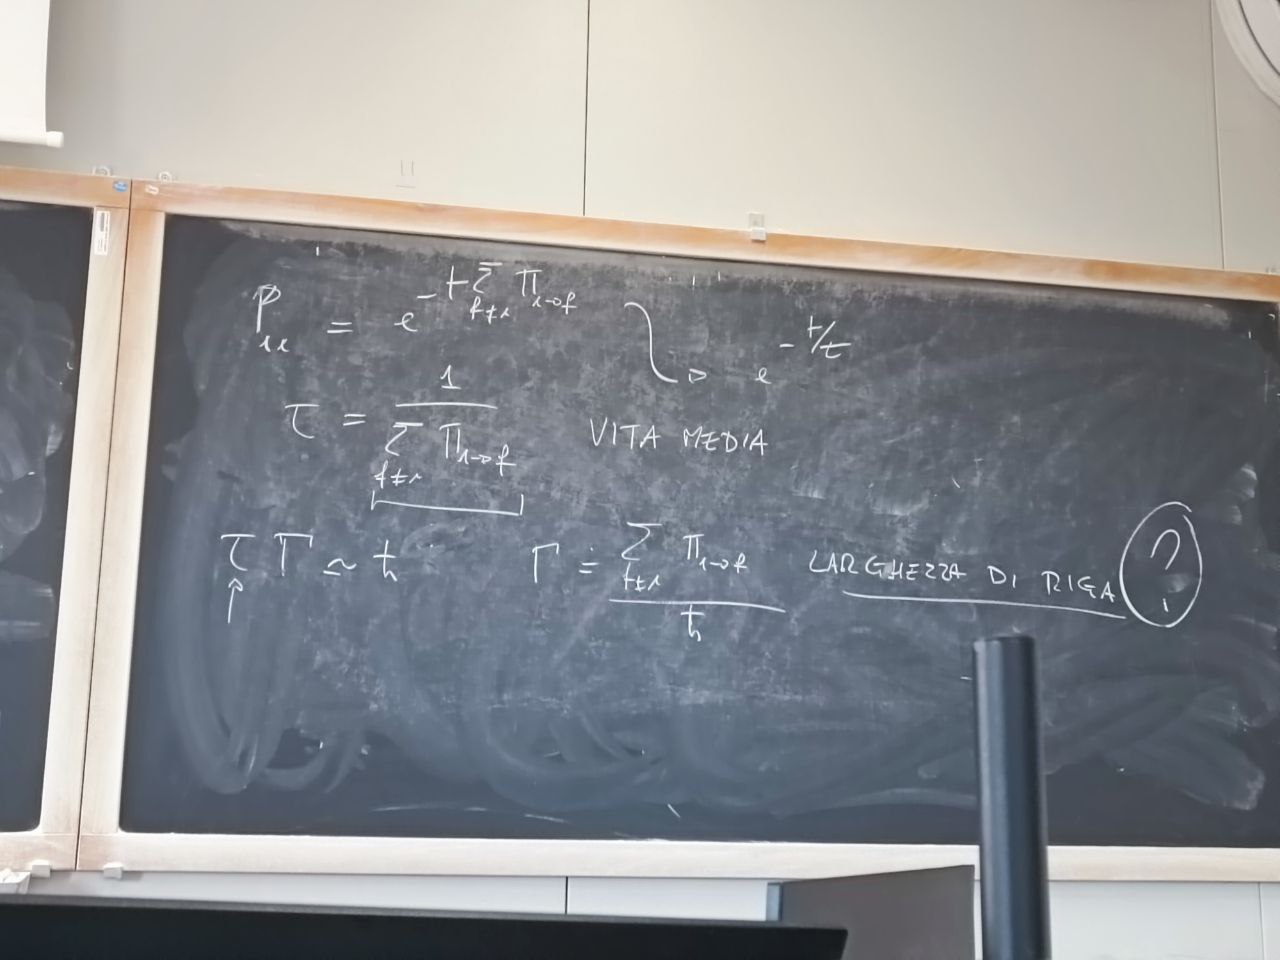 P_{ii} = e^{-t Σ_{f≠i} Π_{i→f}} → e^{-t/τ}
τ = 1 / Σ_{f≠i} Π_{i→f} VITA MEDIA
τ Γ ≃ ħ Γ = Σ_{f≠i} Π_{i→f} / ħ LARGHEZZA DI RIGA ?